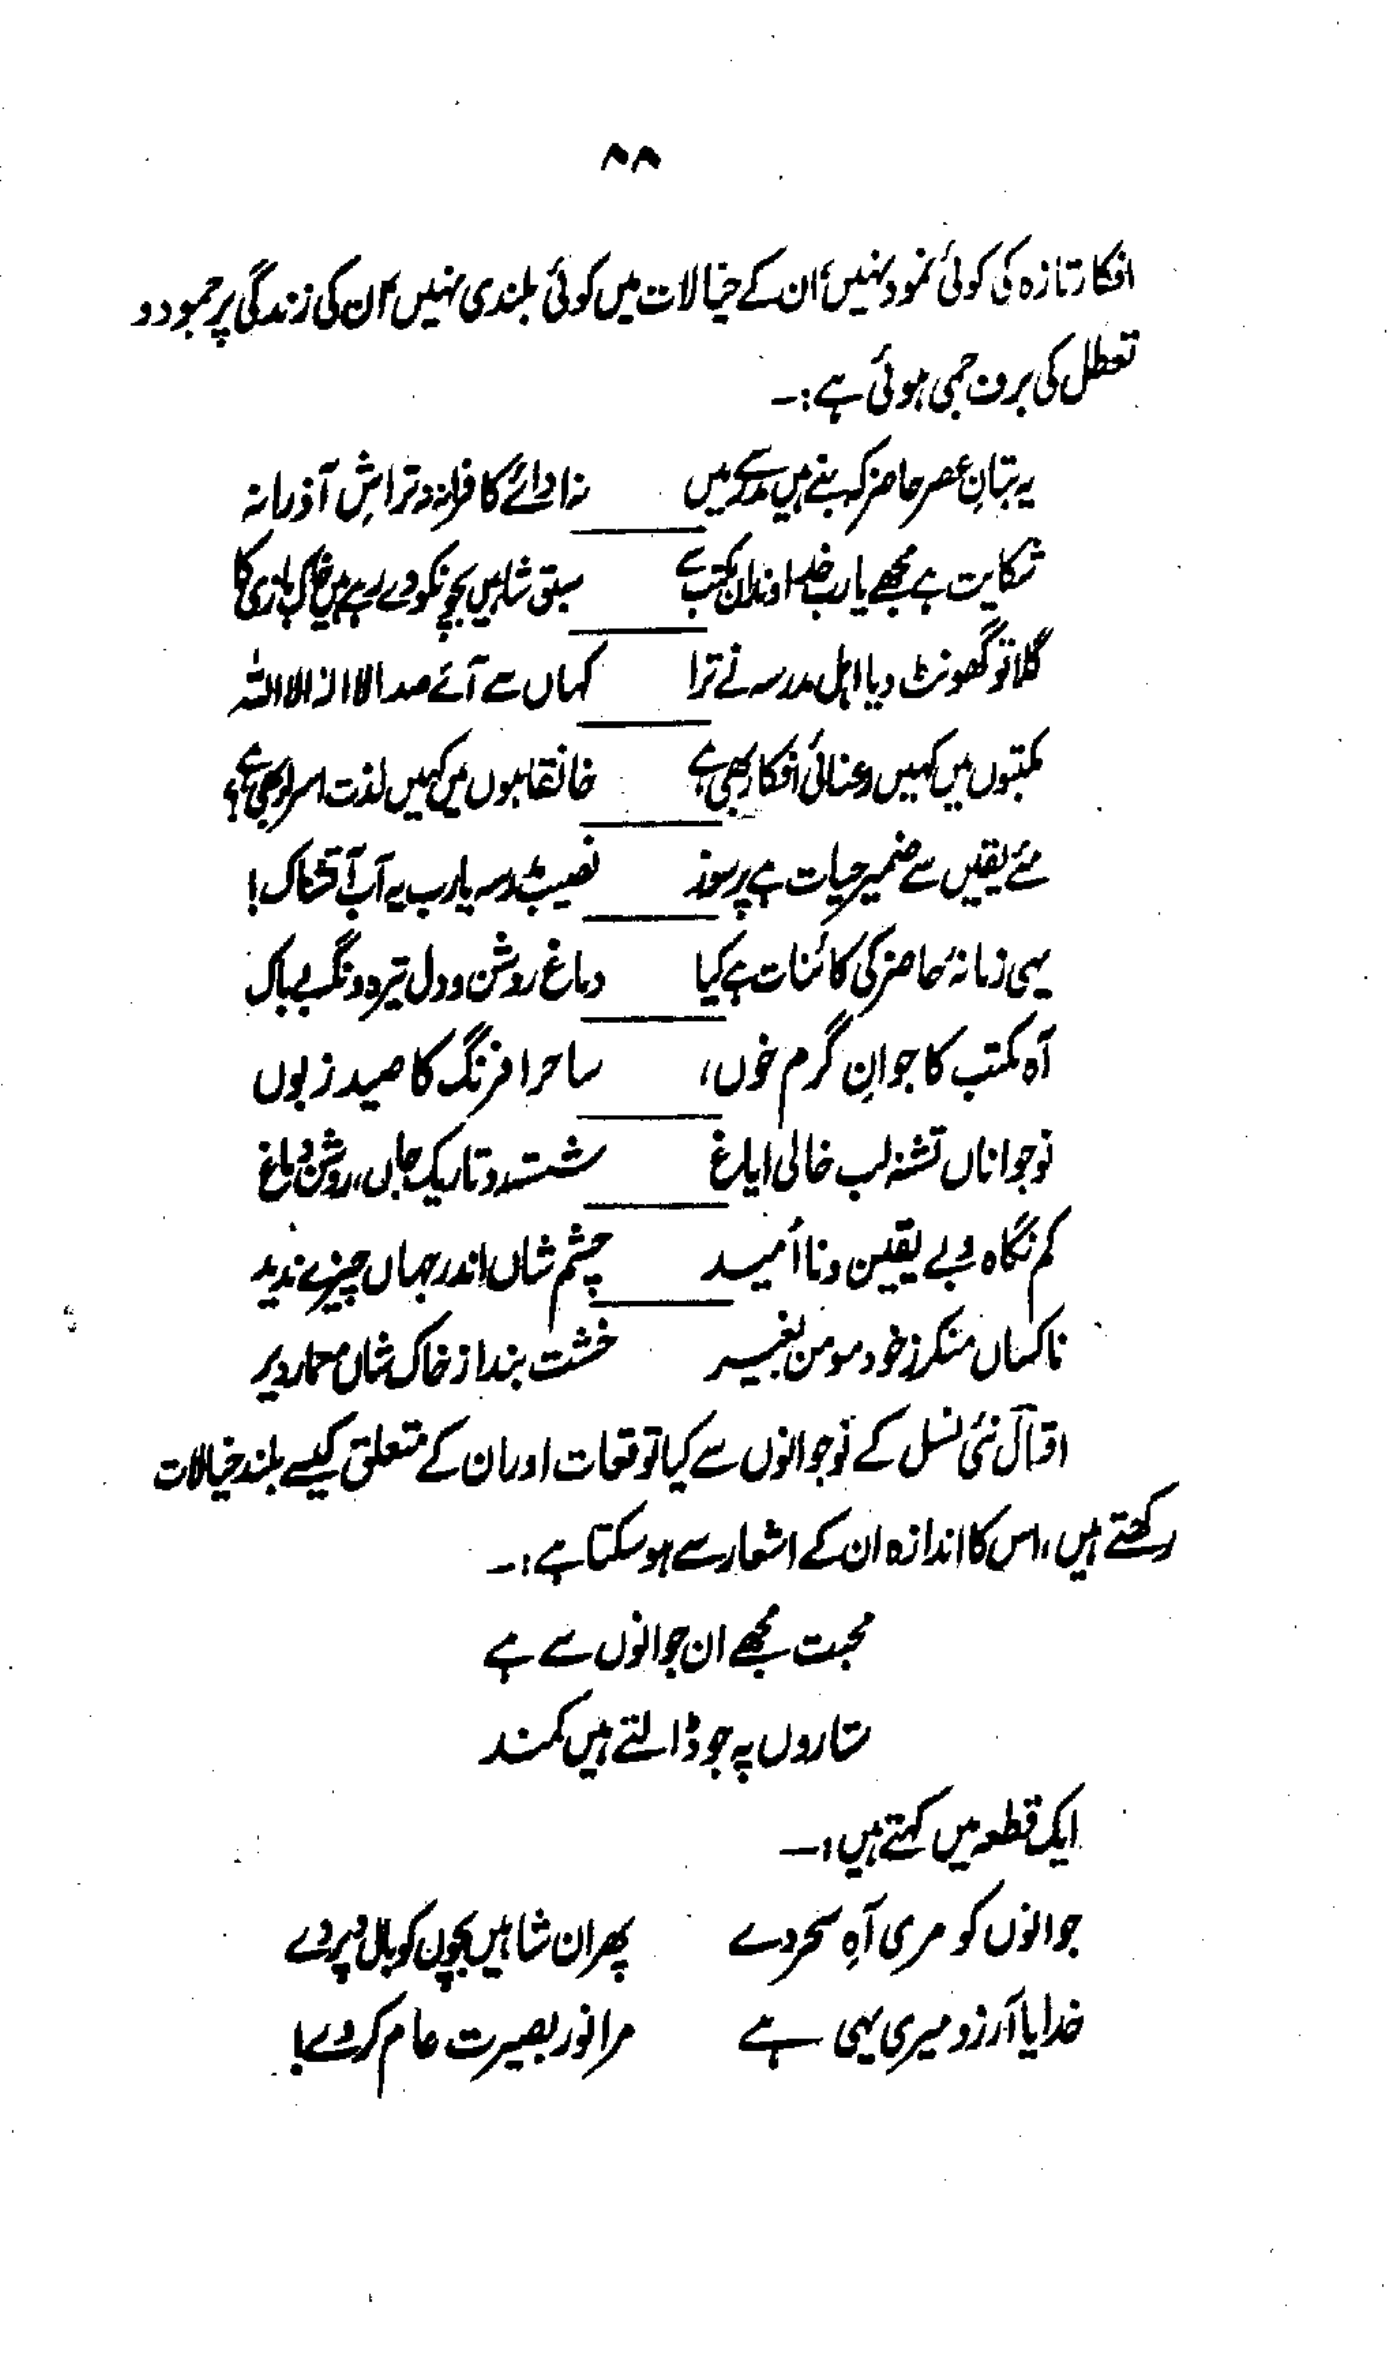 ۸۸
افکار تازہ کی کوئی نمود نہیں، ان کے خیالات میں کوئی بلندی نہیں، ان کی زندگی پر جمود و
تعطل کی برف جمی ہوئی ہے:۔
یہ بتانِ عصر حاضر کہ بنے ہیں مدرسے میں نہ ادائے کافرانہ نہ تراشِ آذرانہ
شکایت ہے مجھے یارب خداوندان مکتب سے سبق شاہیں بچونکو دے رہے ہیں خاکبازی کا
گلا تو گھونٹ دیا اہل مدرسہ نے ترا کہاں سے آئے صدا لا الٰہ الا اللہ
مکتبوں میں کہیں رعنائی افکار بھی ہے خانقاہوں میں کہیں لذت اسرار بھی ہے؟
مئے یقیں سے ضمیر حیات ہے پرسوز نصیب مدرسہ یارب یہ آب آتشناک!
یہی زمانۂ حاضر کی کائنات ہے کیا دماغ روشن و دل تیرہ و نگہ بے باک
آہ مکتب کا جوانِ گرم خوں، ساحر افرنگ کا صید زبوں
نوجواناں تشنہ لب خالی ایاغ شستہ رو تاریک جاں، روشن دماغ
کم نگاہ و بے یقین و نا اُمید چشم شاں اندر جہاں چیزے ندید
ناکساں منکر ز خود مومن بغیر خشت بند از خاک شاں معمار دیر
اقبال نئی نسل کے نوجوانوں سے کیا توقعات اور ان کے متعلق کیسے بلند خیالات
رکھتے ہیں، اس کا اندازہ ان کے اشعار سے ہو سکتا ہے:۔
محبت مجھے ان جوانوں سے ہے
ستاروں پہ جو ڈالتے ہیں کمند
ایک قطعہ میں کہتے ہیں:۔
جوانوں کو مری آہِ سحر دے پھر ان شاہیں بچوں کو بال و پر دے
خدایا آرزو میری یہی ہے مرا نور بصیرت عام کر دے!